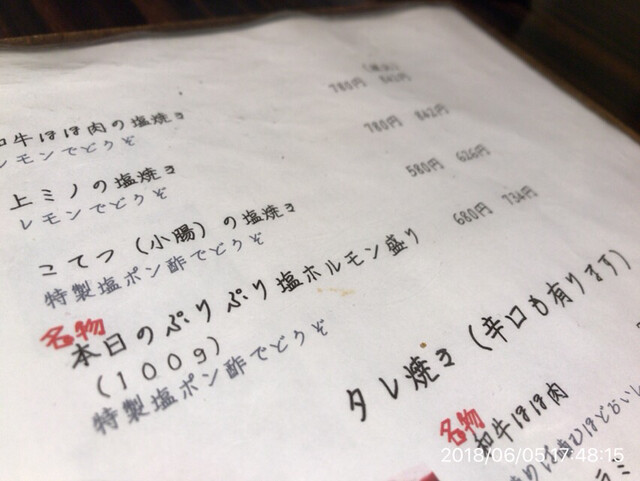 (税込)
780円 842円
和牛ほほ肉の塩焼き
レモンでどうぞ
780円 842円
上ミノの塩焼き
レモンでどうぞ
580円 626円
こてつ（小腸）の塩焼き
特製塩ポン酢でどうぞ
680円 734円
名物
本日のぷりぷり塩ホルモン盛り
（100g）
特製塩ポン酢でどうぞ
タレ焼き（辛口も有ります）
名物
和牛ほほ肉
2018/06/05 17:48:15